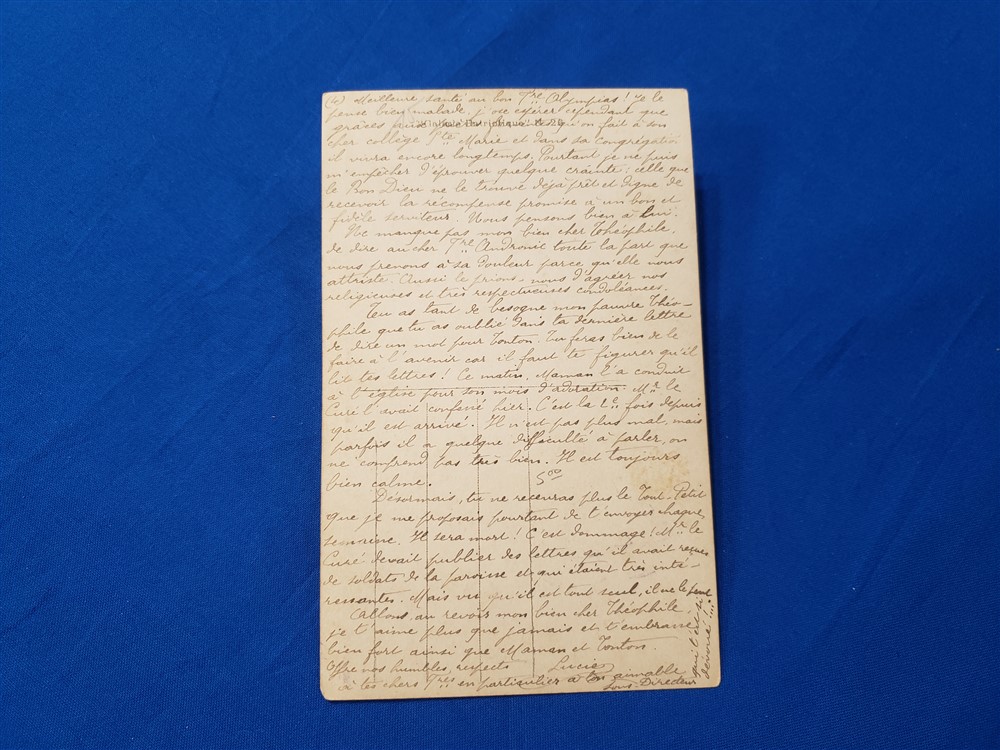 (4) Meilleure santé au bon Fre Olympias ! Je le
pense bien malade, j'ose espérer cependant que
grâces aux bonnes prières qu'on fait à son
cher collège Ste Marie et dans sa congrégation
il vivra encore longtemps. Pourtant je ne puis
m'empêcher d'éprouver quelque crainte : celle que
le Bon Dieu ne le trouve déjà prêt et digne de
recevoir la récompense promise à un bon et
fidèle serviteur. Nous pensons bien à Lui.
Ne manque pas mon bien cher Théophile,
de dire au cher Fre Andronic toute la part que
nous prenons à sa douleur parce qu'elle nous
attriste. Aussi le prions-nous d'agréer nos
religieuses et très respectueuses condoléances.
Tu as tant de besogne mon pauvre Théo-
phile que tu as oublié dans ta dernière lettre
de dire un mot pour Tonton. Tu feras bien de le
faire à l'avenir car il faut te figurer qu'il
lit tes lettres ! Ce matin, Maman l'a conduit
à l'église pour son mois d'adoration. Mr le
Curé l'avait confessé hier. C'est la 1e fois depuis
qu'il est arrivé. Il n'est pas plus mal, mais
parfois il a quelque difficulté à parler, on
ne comprend pas très bien. Il est toujours
bien calme.
Désormais, tu ne recevras plus le Tout-Petit
que je me proposais pourtant de t'envoyer chaque
semaine. Il sera mort ! C'est dommage ! Mr le
Curé devait publier des lettres qu'il avait reçues
de soldats de la paroisse et qui étaient très inté-
ressantes. Mais vu qu'il est tout seul, il ne le peut
Allons, au revoir mon bien cher Théophile,
je t'aime plus que jamais et t'embrasse
bien fort ainsi que Maman et Tonton.
Offre nos humbles respects Lucie
à tes chers Fres en particulier à ton aimable
Sous-Directeur
qui t'est si
dévoué !...